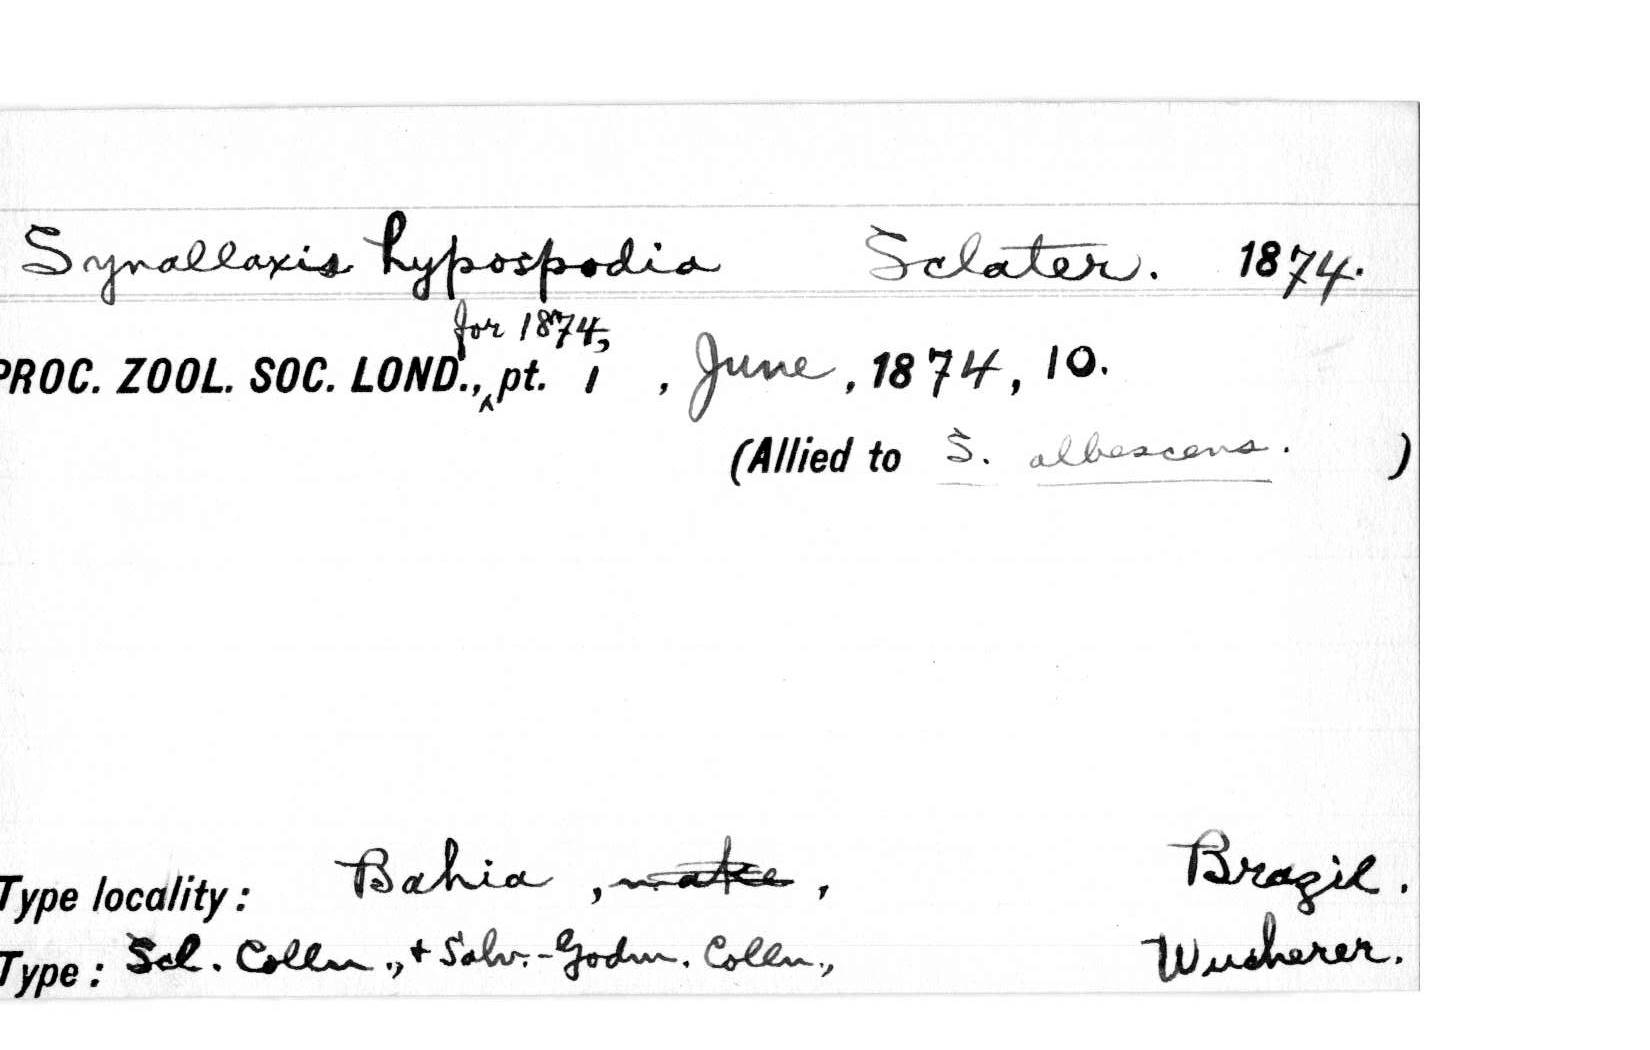 Synallaxis hypospodia Sclater. 1874.
for 1874,
PROC. ZOOL. SOC. LOND., pt. 1 , June, 1874, 10.
(Allied to S. albescens. )
Type locality: Bahia , , Brazil.
Type: Scl. Colln., + Salv.-Godm. Colln., Wucherer.